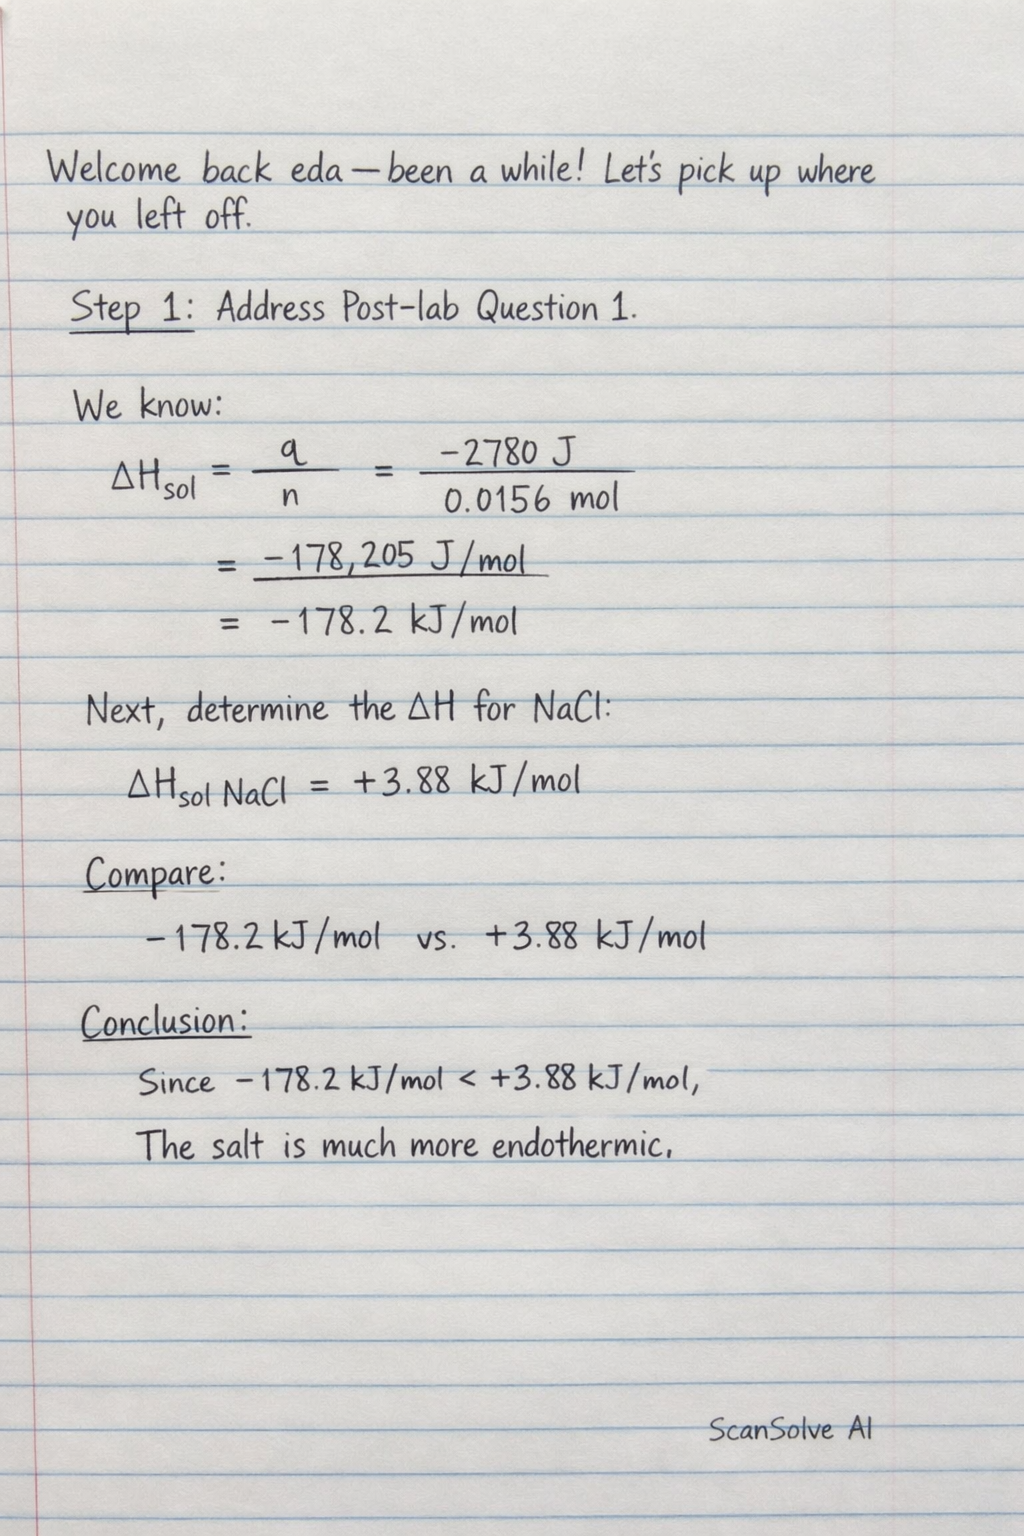 Welcome back eda — been a while! Let's pick up where
you left off.
Step 1: Address Post-lab Question 1.
We know:
ΔHsol = q / n = -2780 J / 0.0156 mol
= -178,205 J/mol
= -178.2 kJ/mol
Next, determine the ΔH for NaCl:
ΔHsol NaCl = +3.88 kJ/mol
Compare:
-178.2 kJ/mol vs. +3.88 kJ/mol
Conclusion:
Since -178.2 kJ/mol < +3.88 kJ/mol,
The salt is much more endothermic.
ScanSolve AI